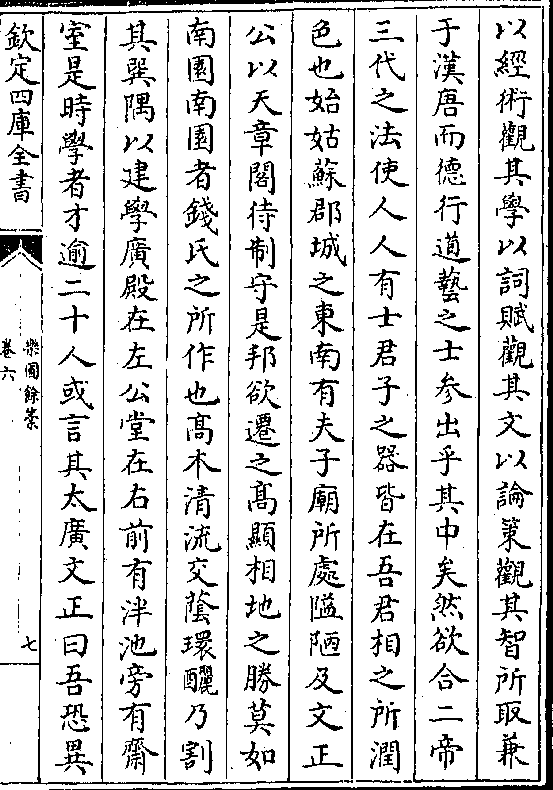 以經術觀其學以詞賦觀其文以論策觀其智所取兼
于漢唐而德行道藝之士參出乎其中矣然欲合二帝
三代之法使人人有士君子之器皆在吾君相之所潤
色也始姑蘇郡城之東南有夫子廟所處隘陋及文正
公以天章閣待制守是邦欲遷之髙顯相地之勝莫如
南園南園者錢氏之所作也髙木清流交蔭環釃乃割
其巽隅以建學廣殿在左公堂在右前有泮池旁有齋
室是時學者才逾二十人或言其太廣文正曰吾恐異
欽定四庫全書
樂圃餘藁
卷六
七